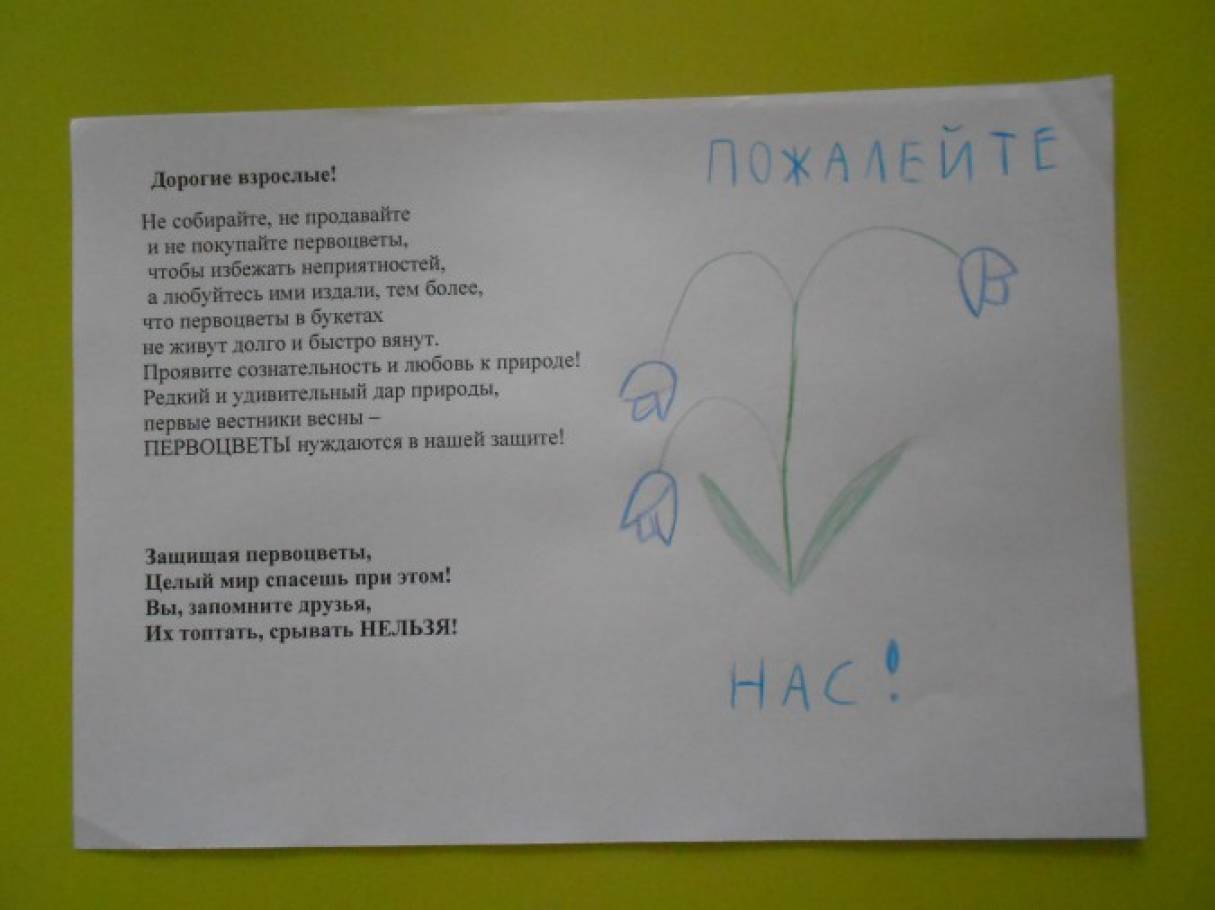 Дорогие взрослые!
Не собирайте, не продавайте
и не покупайте первоцветы,
чтобы избежать неприятностей,
а любуйтесь ими издали, тем более,
что первоцветы в букетах
не живут долго и быстро вянут.
Проявите сознательность и любовь к природе!
Редкий и удивительный дар природы,
первые вестники весны –
ПЕРВОЦВЕТЫ нуждаются в нашей защите!
Защищая первоцветы,
Целый мир спасешь при этом!
Вы, запомните друзья,
Их топтать, срывать НЕЛЬЗЯ!
ПОЖАЛЕЙТЕ
НАС!